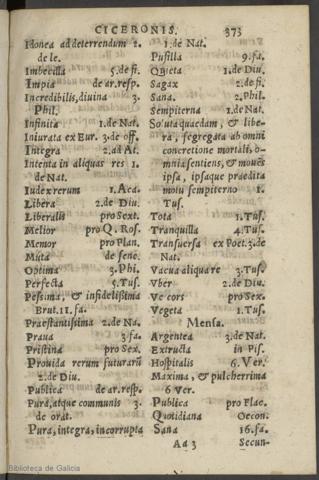 CICERONIS. 373
Idonea ad deterrendum 2.
de le.
Imbecilla 5.de fi.
Impia de ar.resp.
Incredibilis, diuina 3.
Phil.
Infinita 1.de Nat.
Iniurata ex Eur. 3.de off.
Integra 2.ad At.
Intenta in aliquas res 1.
de Nat.
Iudex rerum 1.Aca.
Libera 2.de Diu.
Liberalis pro Sext.
Melior pro Q. Ros.
Memor pro Plan.
Muta de senec.
Optima 3.Phi.
Perfecta 5.Tus.
Pessima, & infidelißima
Brut.11.fa.
Praestantissima 2.de Na.
Praua 3 fa.
Pristina pro Sex.
Prouida rerum futurarũ
2.de Diu.
Publica de ar.resp.
Pura, atque communis 3.
de orat.
Pura, integra, incorrupta
1.de Nat.
Pusilla 9.fa.
Quieta 1.de Diu.
Sagax 2.de fi.
Sana. 2.Phil.
Sempiterna 1.de Nat.
Soluta quaedam, & libe-
ra, segregata ab omni
concretione mortali, o-
mnia sentiens, & mouẽs
ipsa, ipsaque praedita
motu sempiterno 1.
Tus.
Tota 1.Tus.
Tranquilla 4.Tus.
Transuersa ex Poet.3.de
Nat.
Vacua aliqua re 3.Tus.
Vber 2.de Diu.
Ve cors pro Sex.
Vegeta 1.Tus.
Mensa.
Argentea 3.de Nat.
Extructa in Pis.
Hospitalis 6.Ver.
Maxima, & pulcherrima
6 Ver.
Publica pro Flac.
Quotidiana Oecon.
Sana 16.fa.
Aa 3 Secun-
Biblioteca de Galicia